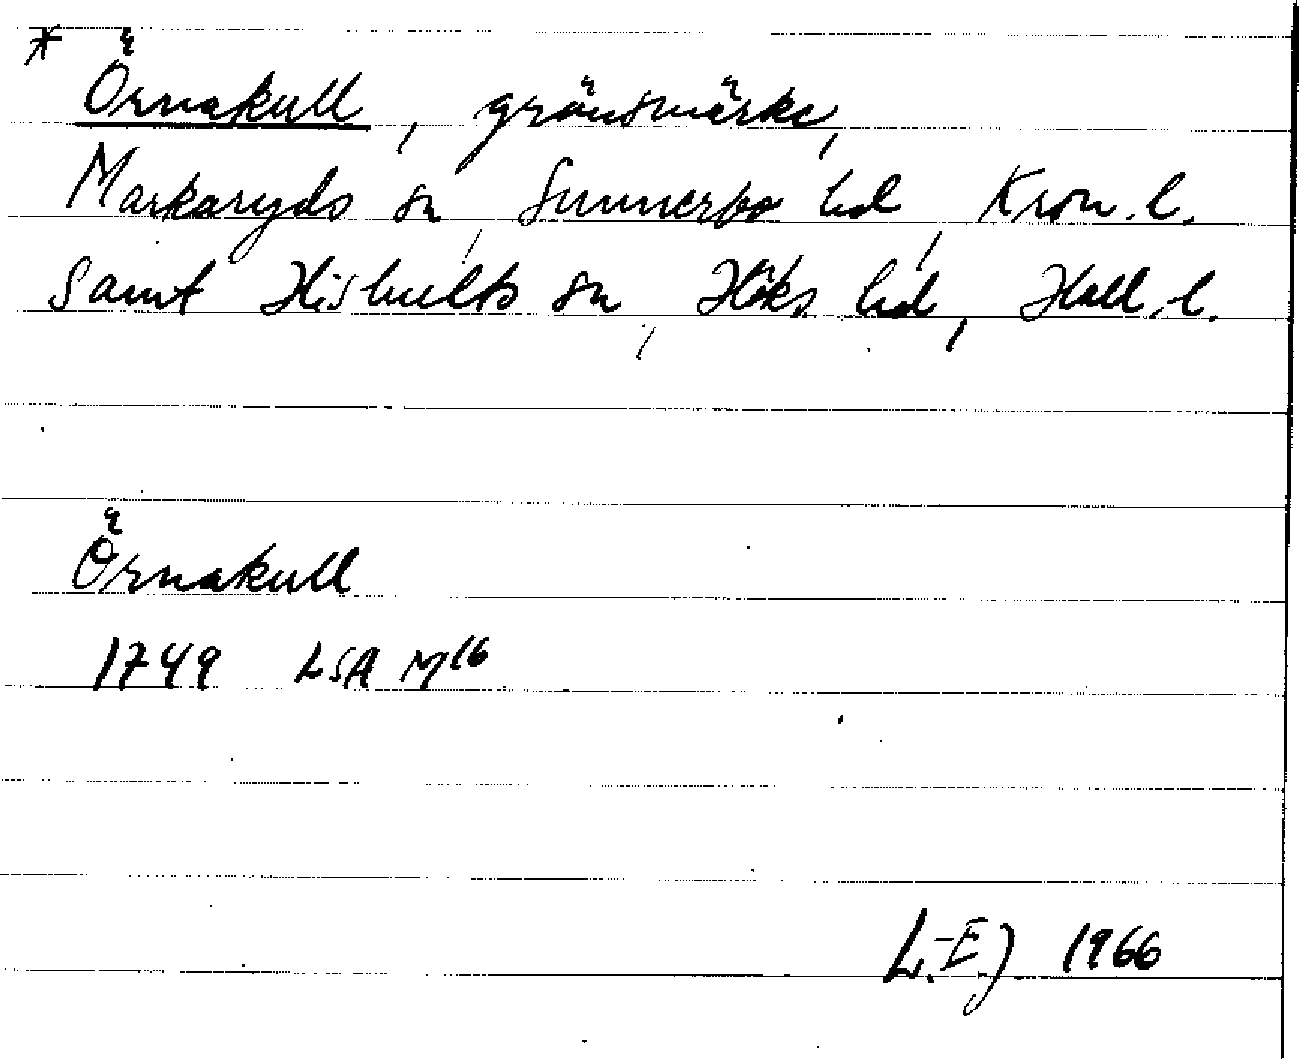 * Örnakull, gränsmärke,
Markaryds sn, Sunnerbo hd, Kron. l.
samt Hishults sn, Höks hd, Hall. l.
Örnakull
1749 LSA M16
L.-E.J 1966